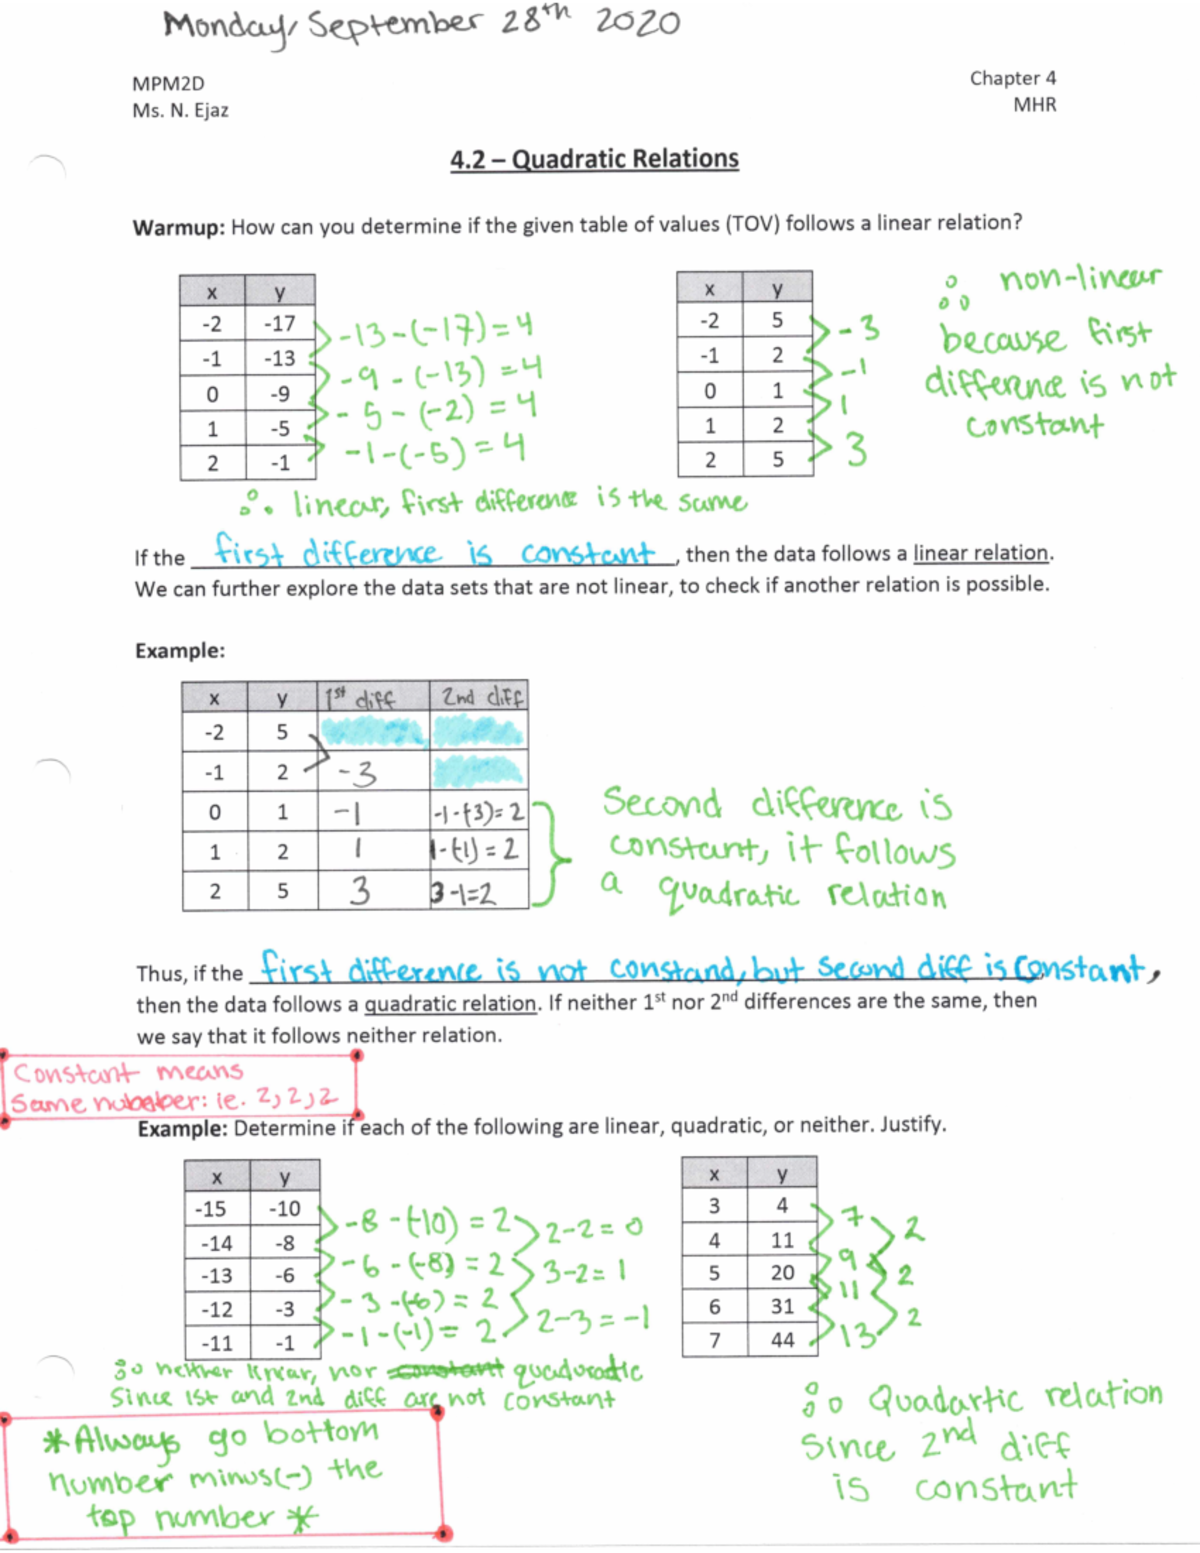 Monday, September 28th 2020
MPM2D
Chapter 4
Ms. N. Ejaz
MHR
4.2 – Quadratic Relations
Warmup: How can you determine if the given table of values (TOV) follows a linear relation?
x y
-2 -17
-1 -13
0 -9
1 -5
2 -1
-13-(-17)=4
-9-(-13)=4
-5-(-2)=4
-1-(-5)=4
∴ linear, first difference is the same
x y
-2 5
-1 2
0 1
1 2
2 5
-3
-1
1
3
∴ non-linear
because first
difference is not
constant
If the first difference is constant, then the data follows a linear relation.
We can further explore the data sets that are not linear, to check if another relation is possible.
Example:
x y 1st diff 2nd diff
-2 5
-1 2 -3
0 1 -1 -1-(-3)=2
1 2 1 1-(-1)=2
2 5 3 3-1=2
Second difference is
constant, it follows
a quadratic relation
Thus, if the first difference is not constand, but second diff is constant,
then the data follows a quadratic relation. If neither 1st nor 2nd differences are the same, then
we say that it follows neither relation.
Constant means
Same nubeber: ie. 2,2,2
Example: Determine if each of the following are linear, quadratic, or neither. Justify.
x y
-15 -10
-14 -8
-13 -6
-12 -3
-11 -1
-8-(-10)=2
-6-(-8)=2
-3-(-6)=2
-1-(-1)=2
2-2=0
3-2=1
2-3=-1
∴ neither linear, nor constant quaduradic
Since 1st and 2nd diff are not constant
x y
3 4
4 11
5 20
6 31
7 44
7
9
11
13
2
2
2
∴ Quadartic relation
Since 2nd diff
is constant
*Always go bottom
number minus(-) the
top number*